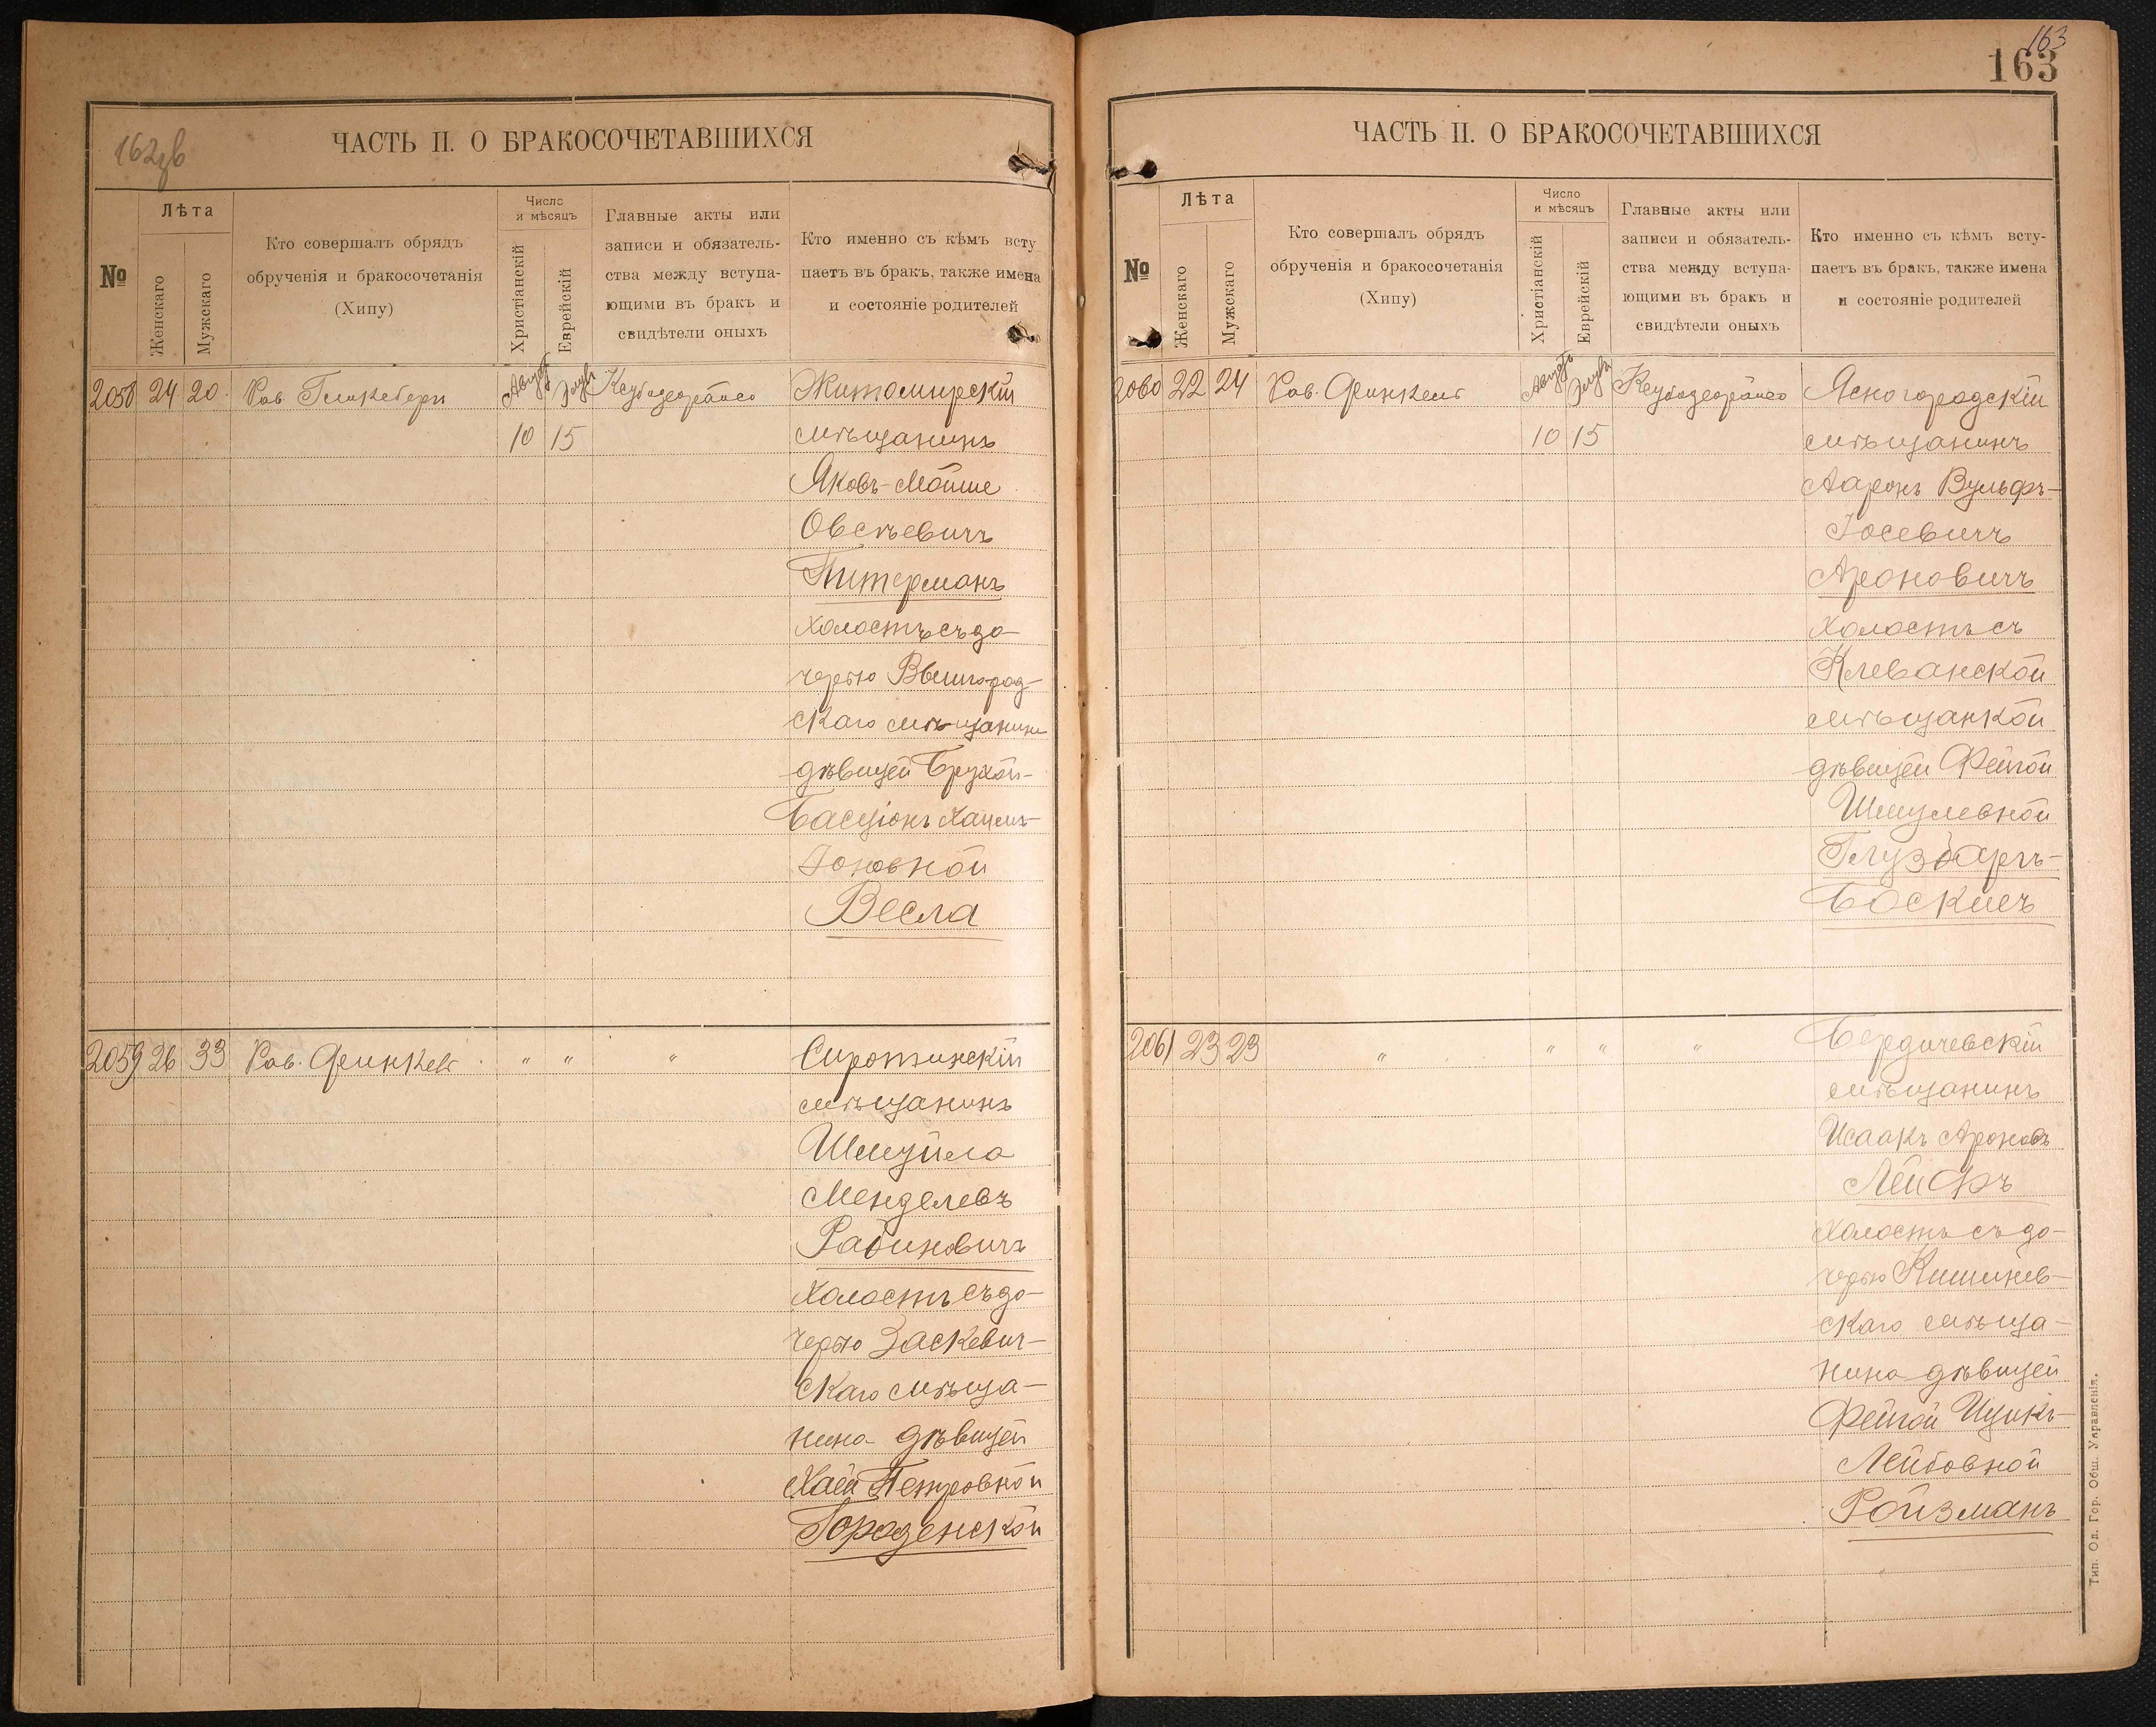 162 зв
ЧАСТЬ II. О БРАКОСОЧЕТАВШИХСЯ
№
Лѣта
Женскаго
Мужскаго
Кто совершалъ обрядъ
обрученія и бракосочетанія
(Хипу)
Число
и мѣсяцъ
Христіанскій
Еврейскій
Главные акты или
записи и обязатель-
ства между вступа-
ющими въ бракъ и
свидѣтели оныхъ
Кто именно съ кѣмъ всту
паетъ въ бракъ, также имена
и состояніе родителей
2058 24 20 Рав. Августъ Элулъ Житомирскій
10 15 мѣщанинъ
Яковъ-Мойше
Овсѣевичъ
Питерманъ
холостъ съ до-
черью Вышгород-
скаго мѣщанина
дѣвицей Брухой-
Басціонъ Хаимъ-
Іоновной
Весла
2059 26 33 Рав. " " " Сиротинскій
мѣщанинъ
Шмуйла
Менделевъ
Рабиновичъ
холостъ съ до-
черью Заскевич-
скаго мѣща-
нина дѣвицей
Хаей Петровной
Городенской
163
163
ЧАСТЬ II. О БРАКОСОЧЕТАВШИХСЯ
№
Лѣта
Женскаго
Мужскаго
Кто совершалъ обрядъ
обрученія и бракосочетанія
(Хипу)
Число
и мѣсяцъ
Христіанскій
Еврейскій
Главные акты или
записи и обязатель-
ства между вступа-
ющими въ бракъ и
свидѣтели оныхъ
Кто именно съ кѣмъ всту-
паетъ въ бракъ, также имена
и состояніе родителей
2060 22 24 Рав. Августъ Элулъ Ясногородскій
10 15 мѣщанинъ
Ааронъ Вульфъ-
Іосевичъ
Ароновичъ
холостъ съ
Клеванской
мѣщанкой
дѣвицей Фейгой
Шмулевной
Глузбаргъ-
Боскисъ
2061 23 23 " " " " Бердичевскій
мѣщанинъ
Исаакъ Ароновъ
Лейфъ
холостъ съ до-
черью Кишинев-
скаго мѣща-
нина дѣвицей
Фейгой Ицикъ-
Лейбовной
Ройзманъ
Тип. Од. Гор. Общ. Управленія.